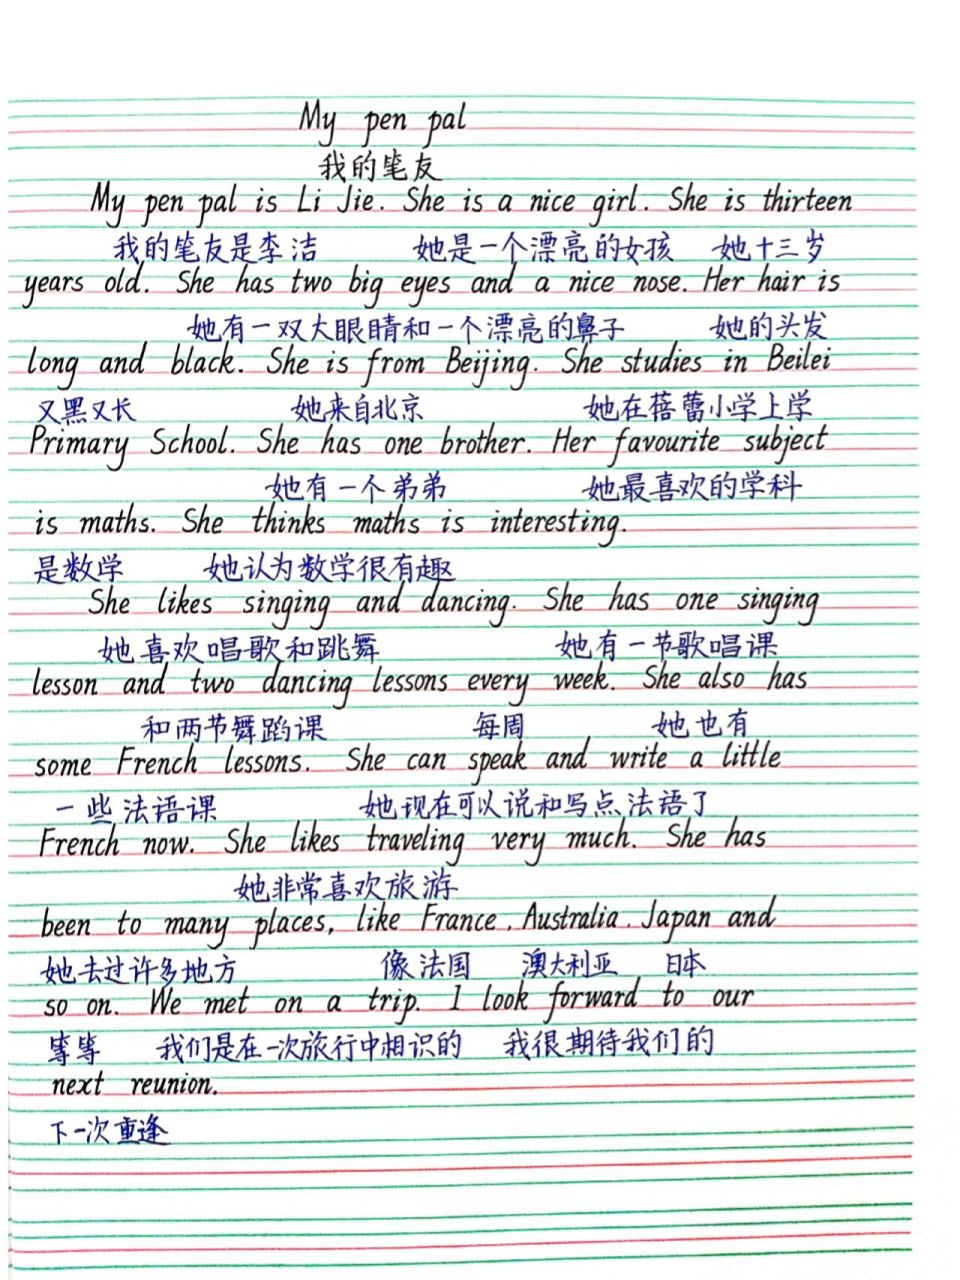 My pen pal
我的笔友
My pen pal is Li Jie. She is a nice girl. She is thirteen
我的笔友是李洁 她是一个漂亮的女孩 她十三岁
years old. She has two big eyes and a nice nose. Her hair is
她有一双大眼睛和一个漂亮的鼻子 她的头发
long and black. She is from Beijing. She studies in Beilei
又黑又长 她来自北京 她在蓓蕾小学上学
Primary School. She has one brother. Her favourite subject
她有一个弟弟 她最喜欢的学科
is maths. She thinks maths is interesting.
是数学 她认为数学很有趣
She likes singing and dancing. She has one singing
她喜欢唱歌和跳舞 她有一节歌唱课
lesson and two dancing lessons every week. She also has
和两节舞蹈课 每周 她也有
some French lessons. She can speak and write a little
一些法语课 她现在可以说和写点法语了
French now. She likes traveling very much. She has
她非常喜欢旅游
been to many places, like France, Australia, Japan and
她去过许多地方 像法国 澳大利亚 日本
so on. We met on a trip. I look forward to our
等等 我们是在一次旅行中相识的 我很期待我们的
next reunion.
下一次重逢